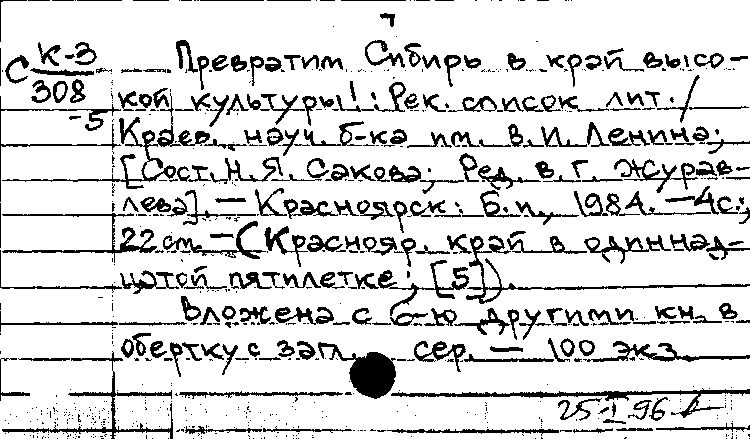 7
С К-3
308
-5
Превратим Сибирь в край высо-
кой культуры! : Рек. список лит. /
Краев. науч. б-ка им. В. И. Ленина;
[Сост. Н. Я. Сакова; Ред. В. Г. Журав-
лева]. — Красноярск: Б. и., 1984. — 4 с.;
22 см. — (Краснояр. край в одиннад-
цатой пятилетке; [5]).
Вложена с 6-ю другими кн. в
обертку с загл. сер. — 100 экз.
25-I 96